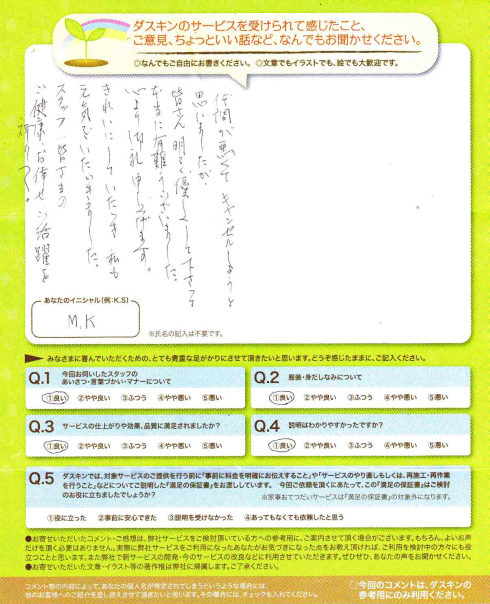 ダスキンのサービスを受けられて感じたこと、
ご意見、ちょっといい話など、なんでもお聞かせください。
◎なんでもご自由にお書きください。 ◎文章でもイラストでも、絵でも大歓迎です。
体調が悪くてキャンセルしようと
思いましたが、
皆さん明るく優しくして下さって
本当に有難うございました。
心より御礼申し上げます。
きれいにしていただき 私も
元気をいただきました。
スタッフ皆さまの
ご健康 お幸せ ご活躍を
祈りつつ。
あなたのイニシャル(例:K.S)
M.K
※氏名の記入は不要です。
みなさまに喜んでいただくための、とても貴重な足がかりにさせて頂きたいと思います。どうぞ感じたままに、ご記入ください。
Q.1 今回お伺いしたスタッフの
あいさつ・言葉づかい・マナーについて
①良い ②やや良い ③ふつう ④やや悪い ⑤悪い
Q.2 服装・身だしなみについて
①良い ②やや良い ③ふつう ④やや悪い ⑤悪い
Q.3 サービスの仕上がりや効果、品質に満足されましたか?
①良い ②やや良い ③ふつう ④やや悪い ⑤悪い
Q.4 説明はわかりやすかったですか?
①良い ②やや良い ③ふつう ④やや悪い ⑤悪い
Q.5 ダスキンでは、対象サービスのご提供を行う前に「事前に料金を明確にお伝えすること」や「サービスのやり直しもしくは、再施工・再作業
を行うこと」などについてご説明した「満足の保証書」をお渡ししています。 今回ご依頼を頂くにあたって、この「満足の保証書」はご検討
のお役に立ちましたでしょうか?
※家事おてつだいサービスは「満足の保証書」の対象外になります。
①役に立った ②事前に安心できた ③説明を受けなかった ④あってもなくても依頼したと思う
●お寄せいただいたコメント・ご感想は、弊社サービスをご検討頂いている方への参考用に、ご案内させて頂く場合がございます。もちろん、よいお声
だけを頂く必要はありません。実際に弊社サービスをご利用になったあなたがお気づきになった点をお教え頂ければ、ご利用を検討中の方々にも役
立つことと思います。また弊社で新サービスの開発・今のサービスの改良などに利用させていただきます。ぜひぜひ、あなたの声をお聞かせください。
●お寄せいただいた文章・イラスト等の著作権は弊社に帰属します。ご了承ください。
コメント等の内容によって、あなたの個人名が特定されてしまうというような場合には、
他のお客様へのご紹介を差し控えさせて頂きたいと思います。その場合には、チェックを入れてください。
□今回のコメントは、ダスキンの
参考用にのみ利用ください。